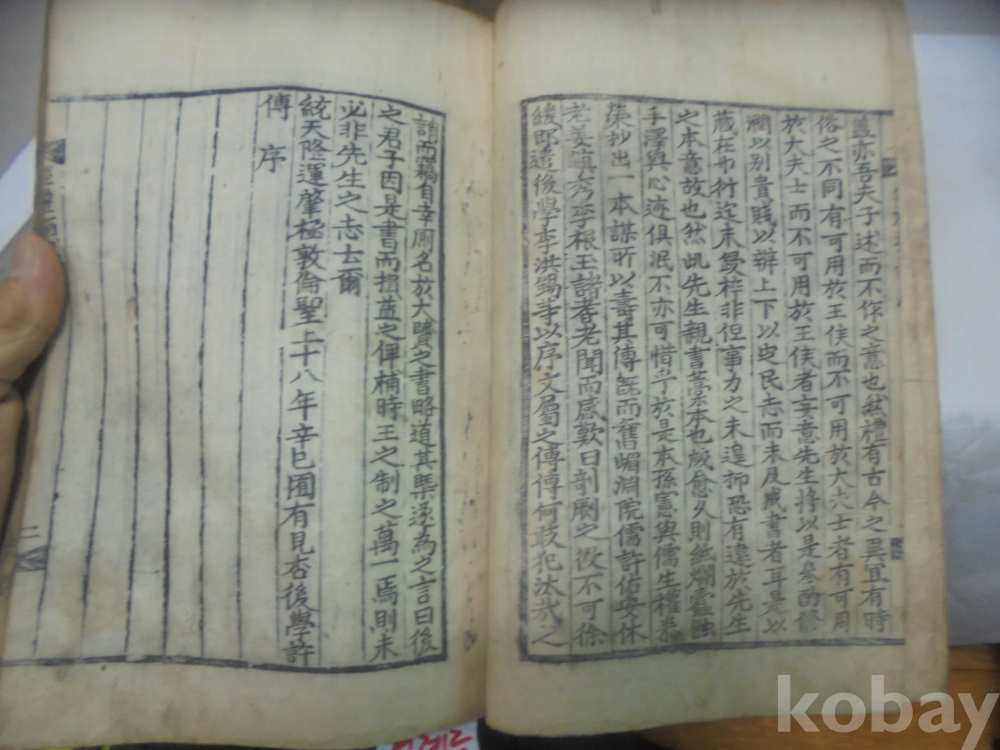 蓋亦吾夫子述而不作之意也然禮有古今之異冝有時
俗之不同有可用於王侯而不可用於大夫士者有可用
於大夫士而不可用於王侯者妄意先生將以是叅酌修
潤以別貴賤以辨上下以㝎民志而未及成書者耳是以
藏在巾衍迄未鋟梓非但事力之未遑抑恐有違於先生
之本意故也然此先生親書藁本也歲愈久則紙爛蠹蝕
手澤與心迹俱泯不亦可惜乎於是本孫憲與儒生權
榮抄出一本謀所以壽其傳旣而舊嵋淵院儒許佑安休
老姜鎭秀李根玉諸耆老聞而感歎曰剞劂之役不可徐
緩卽遣後學李洪錫等以序文屬之傳傳何敢犯汰哉人
誚而竊自幸因名於大賢之書略道其槩遂為之言曰後
之君子因是書而損益之俾補時王之制之萬一焉則未
必非先生之志士爾
統天隆運肇極敦倫聖上十八年辛巳有見否後學許
傳 序
二
kobay